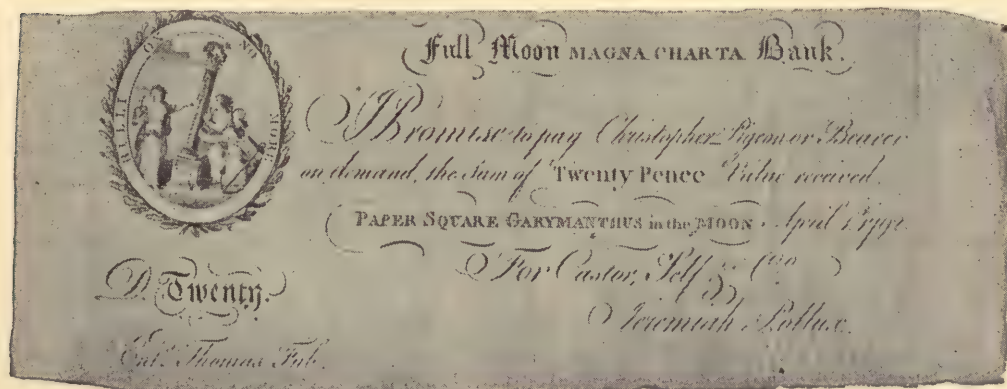 BULLI ON NO MORE
Full Moon MAGNA CHARTA Bank.
I Promise to pay Christopher Pigeon or Bearer
on demand, the Sum of Twenty Pence Value received.
PAPER SQUARE GARYMANTHUS in the MOON April
For Castor, Self & Co.
D. Twenty.
Jeremiah Pollux.
Entd. Thomas Fub.